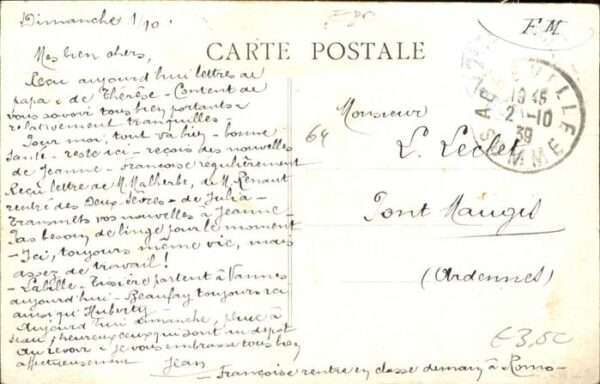 Dimanche 1/10.
F M
CARTE POSTALE
Mes bien chers,
Reçu aujourd'hui lettres de
papa & de Thérèse - Content de
vous savoir tous bien portants &
relativement tranquilles
Pour moi, tout va bien - bonne
santé - reste ici - reçois des nouvelles
de Jeanne - Françoise régulièrement
Reçu lettre de M. Malherbe, de M. Renaut
rentré des Deux-Sèvres & de Julia -
Transmets vos nouvelles à Jeanne -
Pas besoin de linge pour le moment
- Ici, toujours même vie, mais
assez de travail !
- partent à Vannes
aujourd'hui - Beaufay toujours ici
ainsi qu'Huberty -
Aujourd'hui dimanche, pluie à
seau ; heureux ceux qui sont au dépôt
Au revoir & je vous embrasse tous bien
affectueusement Jean
- Françoise rentre en classe demain à Romo -
64
Monsieur
L. Leclet
Pont Maugis
(Ardennes)
VILLE
SOMME
19 45
2-10
39
€3,50